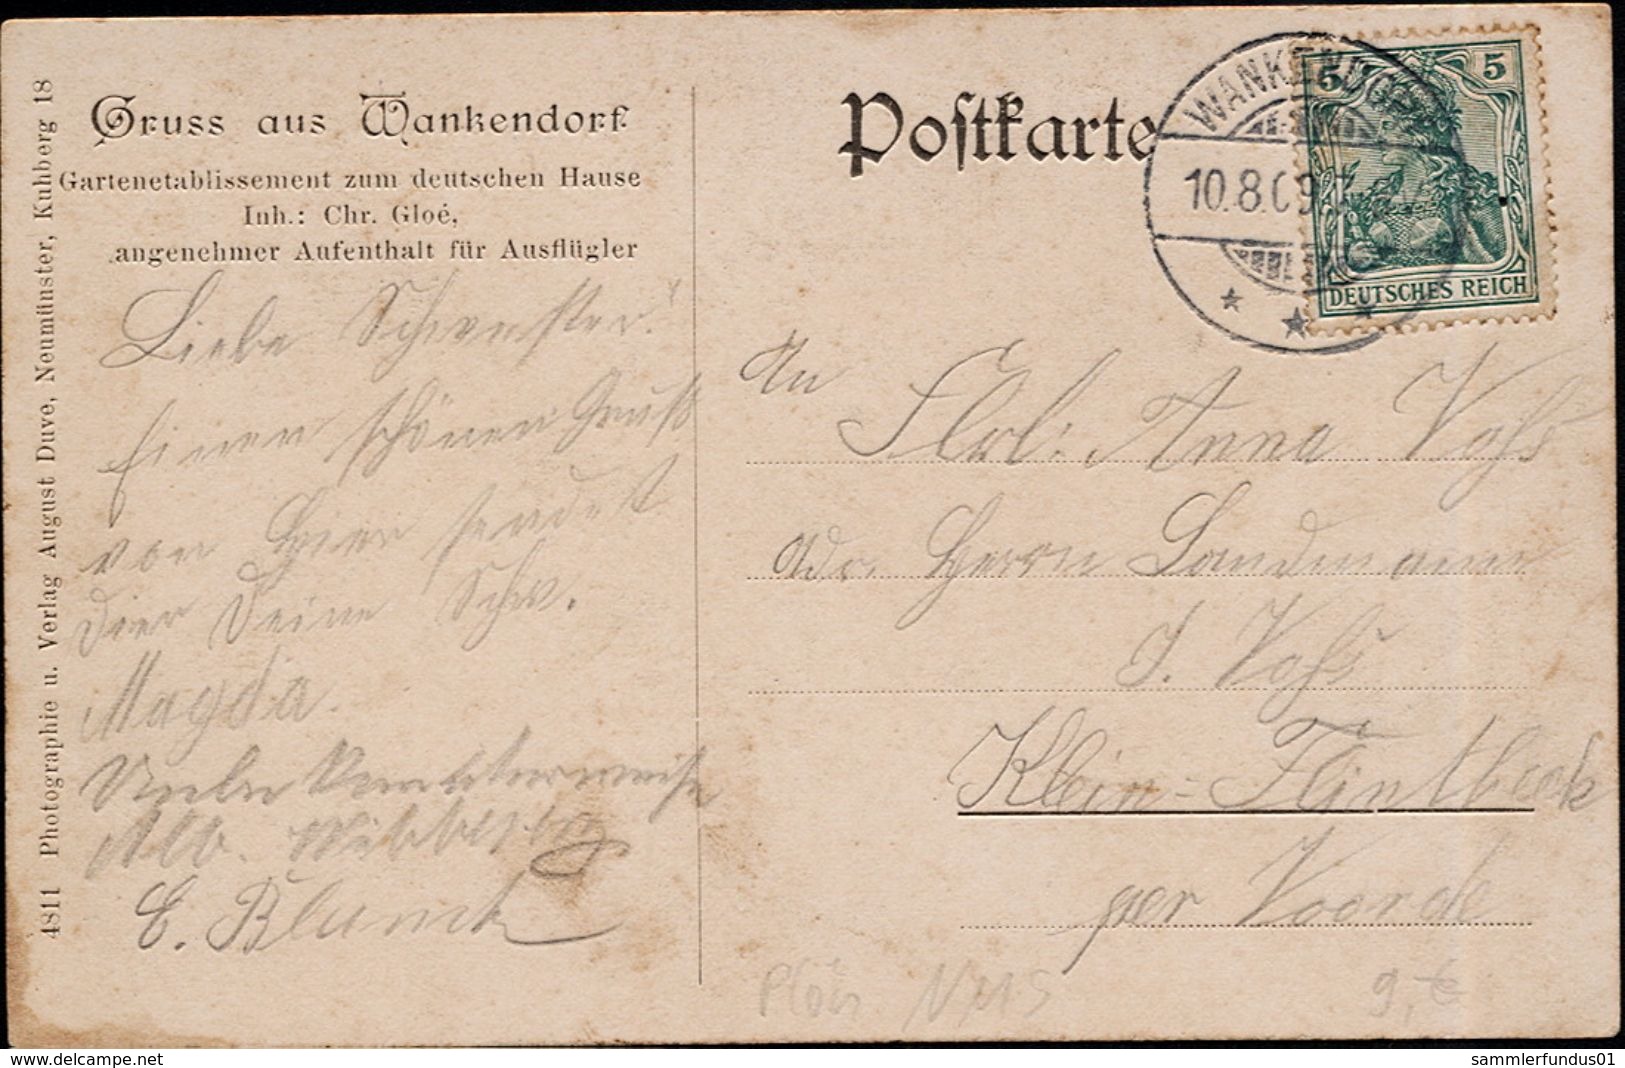 4811 Photographie u. Verlag August Duve, Neumünster, Kuhberg 18
Gruss aus Wankendorf
Gartenetablissement zum deutschen Hause
Inh.: Chr. Gloé,
angenehmer Aufenthalt für Ausflügler
Liebe Schwester!
Einen schönen Gruß
von hier sendet
dier Deine Schw.
Magda.
Alb.
E. Blunck
Postkarte
WANKENDORF
10.8.09
5 5
DEUTSCHES REICH
An
Frl. Anna Vohs
Adr. Herrn Landmann
J. Vohs
Klein-Flintbeck
per Voorde
Plön
9,-€
delcampe.net
sammlerfundus01